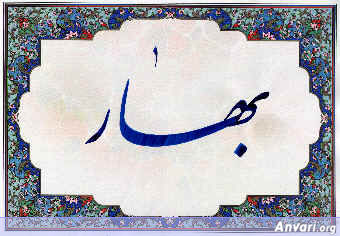 بهار
Anvari.org